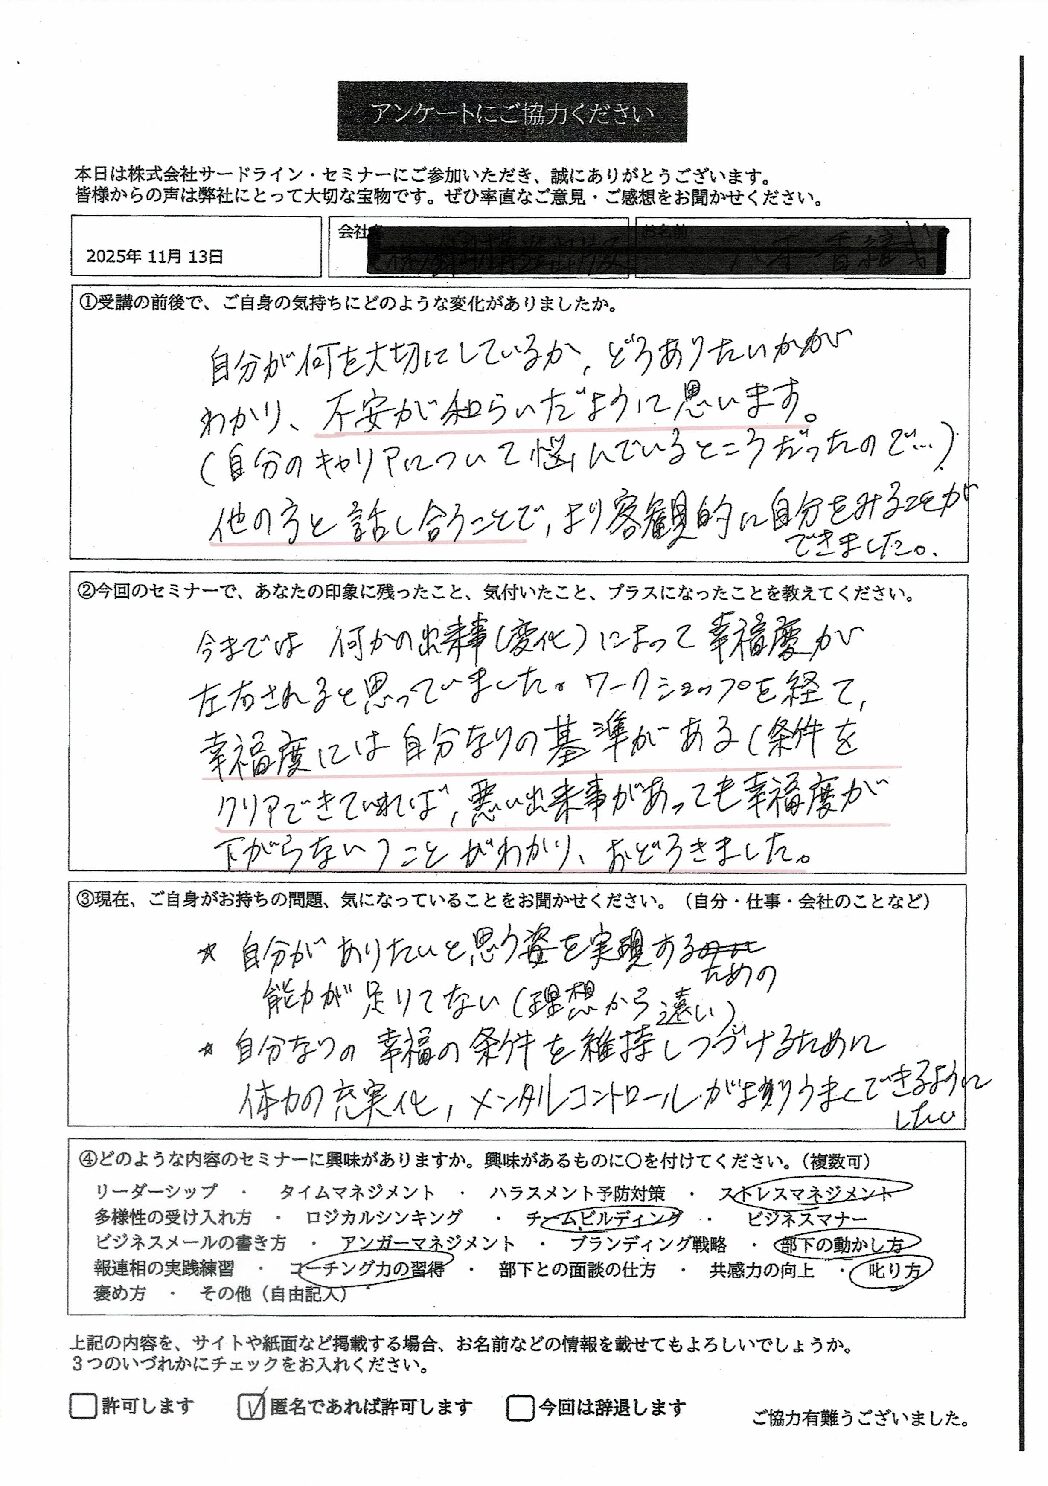 アンケートにご協力ください
本日は株式会社サードライン・セミナーにご参加いただき、誠にありがとうございます。
皆様からの声は弊社にとって大切な宝物です。ぜひ率直なご意見・ご感想をお聞かせください。
2025年 11月 13日
会社
①受講の前後で、ご自身の気持ちにどのような変化がありましたか。
自分が何を大切にしているか、どうありたいかが
わかり、不安が和らいだように思います。
（自分のキャリアについて悩んでいるところだったので…）
他の方と話し合うことで、より客観的に自分をみることが
できました。
②今回のセミナーで、あなたの印象に残ったこと、気付いたこと、プラスになったことを教えてください。
今までは何かの出来事（変化）によって幸福度が
左右されると思っていました。ワークショップを経て、
幸福度には自分なりの基準がある（条件を
クリアできていれば、悪い出来事があっても幸福度が
下がらない）ことがわかり、おどろきました。
③現在、ご自身がお持ちの問題、気になっていることをお聞かせください。（自分・仕事・会社のことなど）
☆ 自分がありたいと思う姿を実現する
ための
能力が足りてない（理想から遠い）
☆ 自分なりの幸福の条件を維持しつづけるために
体力の充実化、メンタルコントロールがよりうまくできるように
したい
④どのような内容のセミナーに興味がありますか。興味があるものに〇を付けてください。（複数可）
リーダーシップ ・ タイムマネジメント ・ ハラスメント予防対策 ・ ストレスマネジメント
多様性の受け入れ方 ・ ロジカルシンキング ・ チームビルディング ・ ビジネスマナー
ビジネスメールの書き方 ・ アンガーマネジメント ・ ブランディング戦略 ・ 部下の動かし方
報連相の実践練習 ・ コーチング力の習得 ・ 部下との面談の仕方 ・ 共感力の向上 ・ 叱り方
褒め方 ・ その他（自由記入）
上記の内容を、サイトや紙面など掲載する場合、お名前などの情報を載せてもよろしいでしょうか。
３つのいづれかにチェックをお入れください。
許可します 匿名であれば許可します 今回は辞退します
ご協力有難うございました。